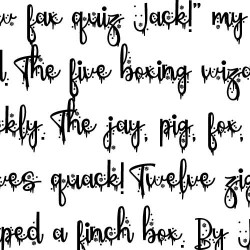 v fax quiz Jack!" my
l. The five boxing wiza
ckly. The jay, pig, fox
ves quack! Twelve zig
ped a finch box. By J